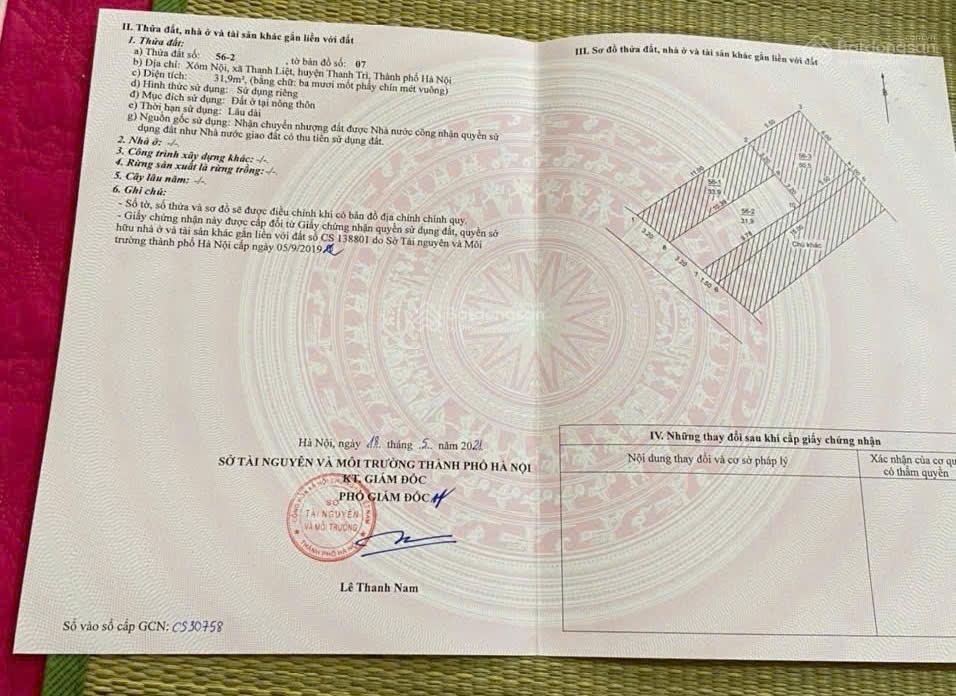 II. Thửa đất, nhà ở và tài sản khác gắn liền với đất
1. Thửa đất:
a) Thửa đất số: 56-2 , tờ bản đồ số: 07
b) Địa chỉ: Xóm Nội, xã Thanh Liệt, huyện Thanh Trì, Thành phố Hà Nội
c) Diện tích: 31,9m², (bằng chữ: ba mươi mốt phẩy chín mét vuông)
d) Hình thức sử dụng: Sử dụng riêng
đ) Mục đích sử dụng: Đất ở tại nông thôn
e) Thời hạn sử dụng: Lâu dài
g) Nguồn gốc sử dụng: Nhận chuyển nhượng đất được Nhà nước công nhận quyền sử
dụng đất như Nhà nước giao đất có thu tiền sử dụng đất.
2. Nhà ở: -/-.
3. Công trình xây dựng khác: -/-.
4. Rừng sản xuất là rừng trồng: -/-.
5. Cây lâu năm: -/-.
6. Ghi chú:
- Số tờ, số thửa và sơ đồ sẽ được điều chỉnh khi có bản đồ địa chính chính quy.
- Giấy chứng nhận này được cấp đổi từ Giấy chứng nhận quyền sử dụng đất, quyền sở
hữu nhà ở và tài sản khác gắn liền với đất số CS 138801 do Sở Tài nguyên và Môi
trường thành phố Hà Nội cấp ngày 05/9/2019
Hà Nội, ngày 18 tháng 5 năm 2021
SỞ TÀI NGUYÊN VÀ MÔI TRƯỜNG THÀNH PHỐ HÀ NỘI
KT. GIÁM ĐỐC
PHÓ GIÁM ĐỐC
SỞ
TÀI NGUYÊN
VÀ MÔI TRƯỜNG
THÀNH PHỐ HÀ NỘI
Lê Thanh Nam
Số vào sổ cấp GCN: CS30758
III. Sơ đồ thửa đất, nhà ở và tài sản khác gắn liền với đất
Batdongsan
B
3
5.50
2
56-3
50,5
56-1
33,9
10.39
56-2
31,9
10
9.78
Chủ khác
1
3.20
6
3.20
7
1.50
8
Batdongsan
IV. Những thay đổi sau khi cấp giấy chứng nhận
Nội dung thay đổi và cơ sở pháp lý
Xác nhận của cơ qu
có thẩm quyền